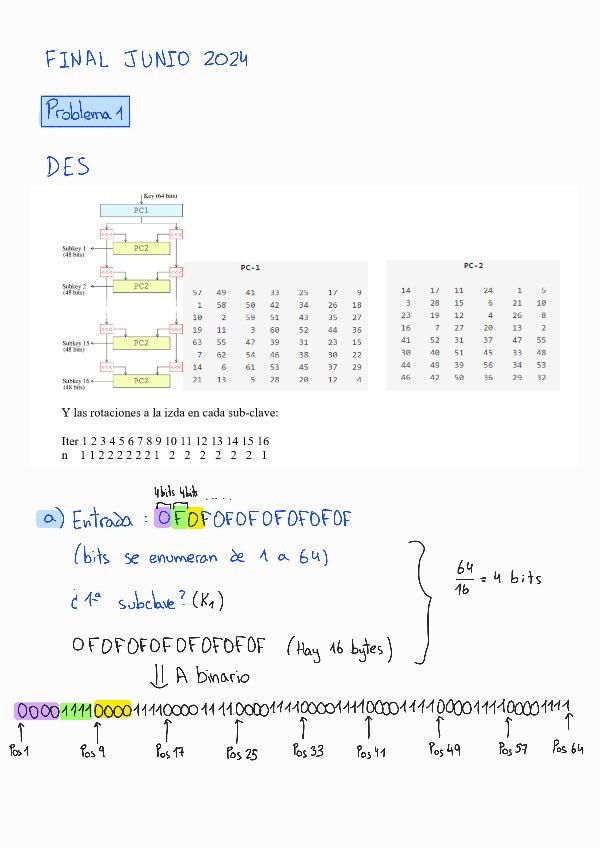 FINAL JUNIO 2024
Problema 1
DES
Key (64 bits)
PC1
<<< <<<
Subkey 1
(48 bits)
PC2
<<< <<<
Subkey 2
(48 bits)
PC2
Subkey 15
(48 bits)
<<< <<<
PC2
<<< <<<
Subkey 16
(48 bits)
PC2
PC-1
57 49 41 33 25 17 9
1 58 50 42 34 26 18
10 2 59 51 43 35 27
19 11 3 60 52 44 36
63 55 47 39 31 23 15
7 62 54 46 38 30 22
14 6 61 53 45 37 29
21 13 5 28 20 12 4
PC-2
14 17 11 24 1 5
3 28 15 6 21 10
23 19 12 4 26 8
16 7 27 20 13 2
41 52 31 37 47 55
30 40 51 45 33 48
44 49 39 56 34 53
46 42 50 36 29 32
Y las rotaciones a la izda en cada sub-clave:
Iter 1 2 3 4 5 6 7 8 9 10 11 12 13 14 15 16
n 1 1 2 2 2 2 2 2 1 2 2 2 2 2 2 1
4bits 4bits .....
a) Entrada : 0F0F0F0F0F0F0F0F
(bits se enumeran de 1 a 64)
¿ 1ª subclave? (K1)
64
16
= 4 bits
0F0F0F0F0F0F0F0F (Hay 16 bytes)
⇓ A binario
0000111100001111000011110000111100001111000011110000111100001111
Pos 1 Pos 9 Pos 17 Pos 25 Pos 33 Pos 41 Pos 49 Pos 57 Pos 64